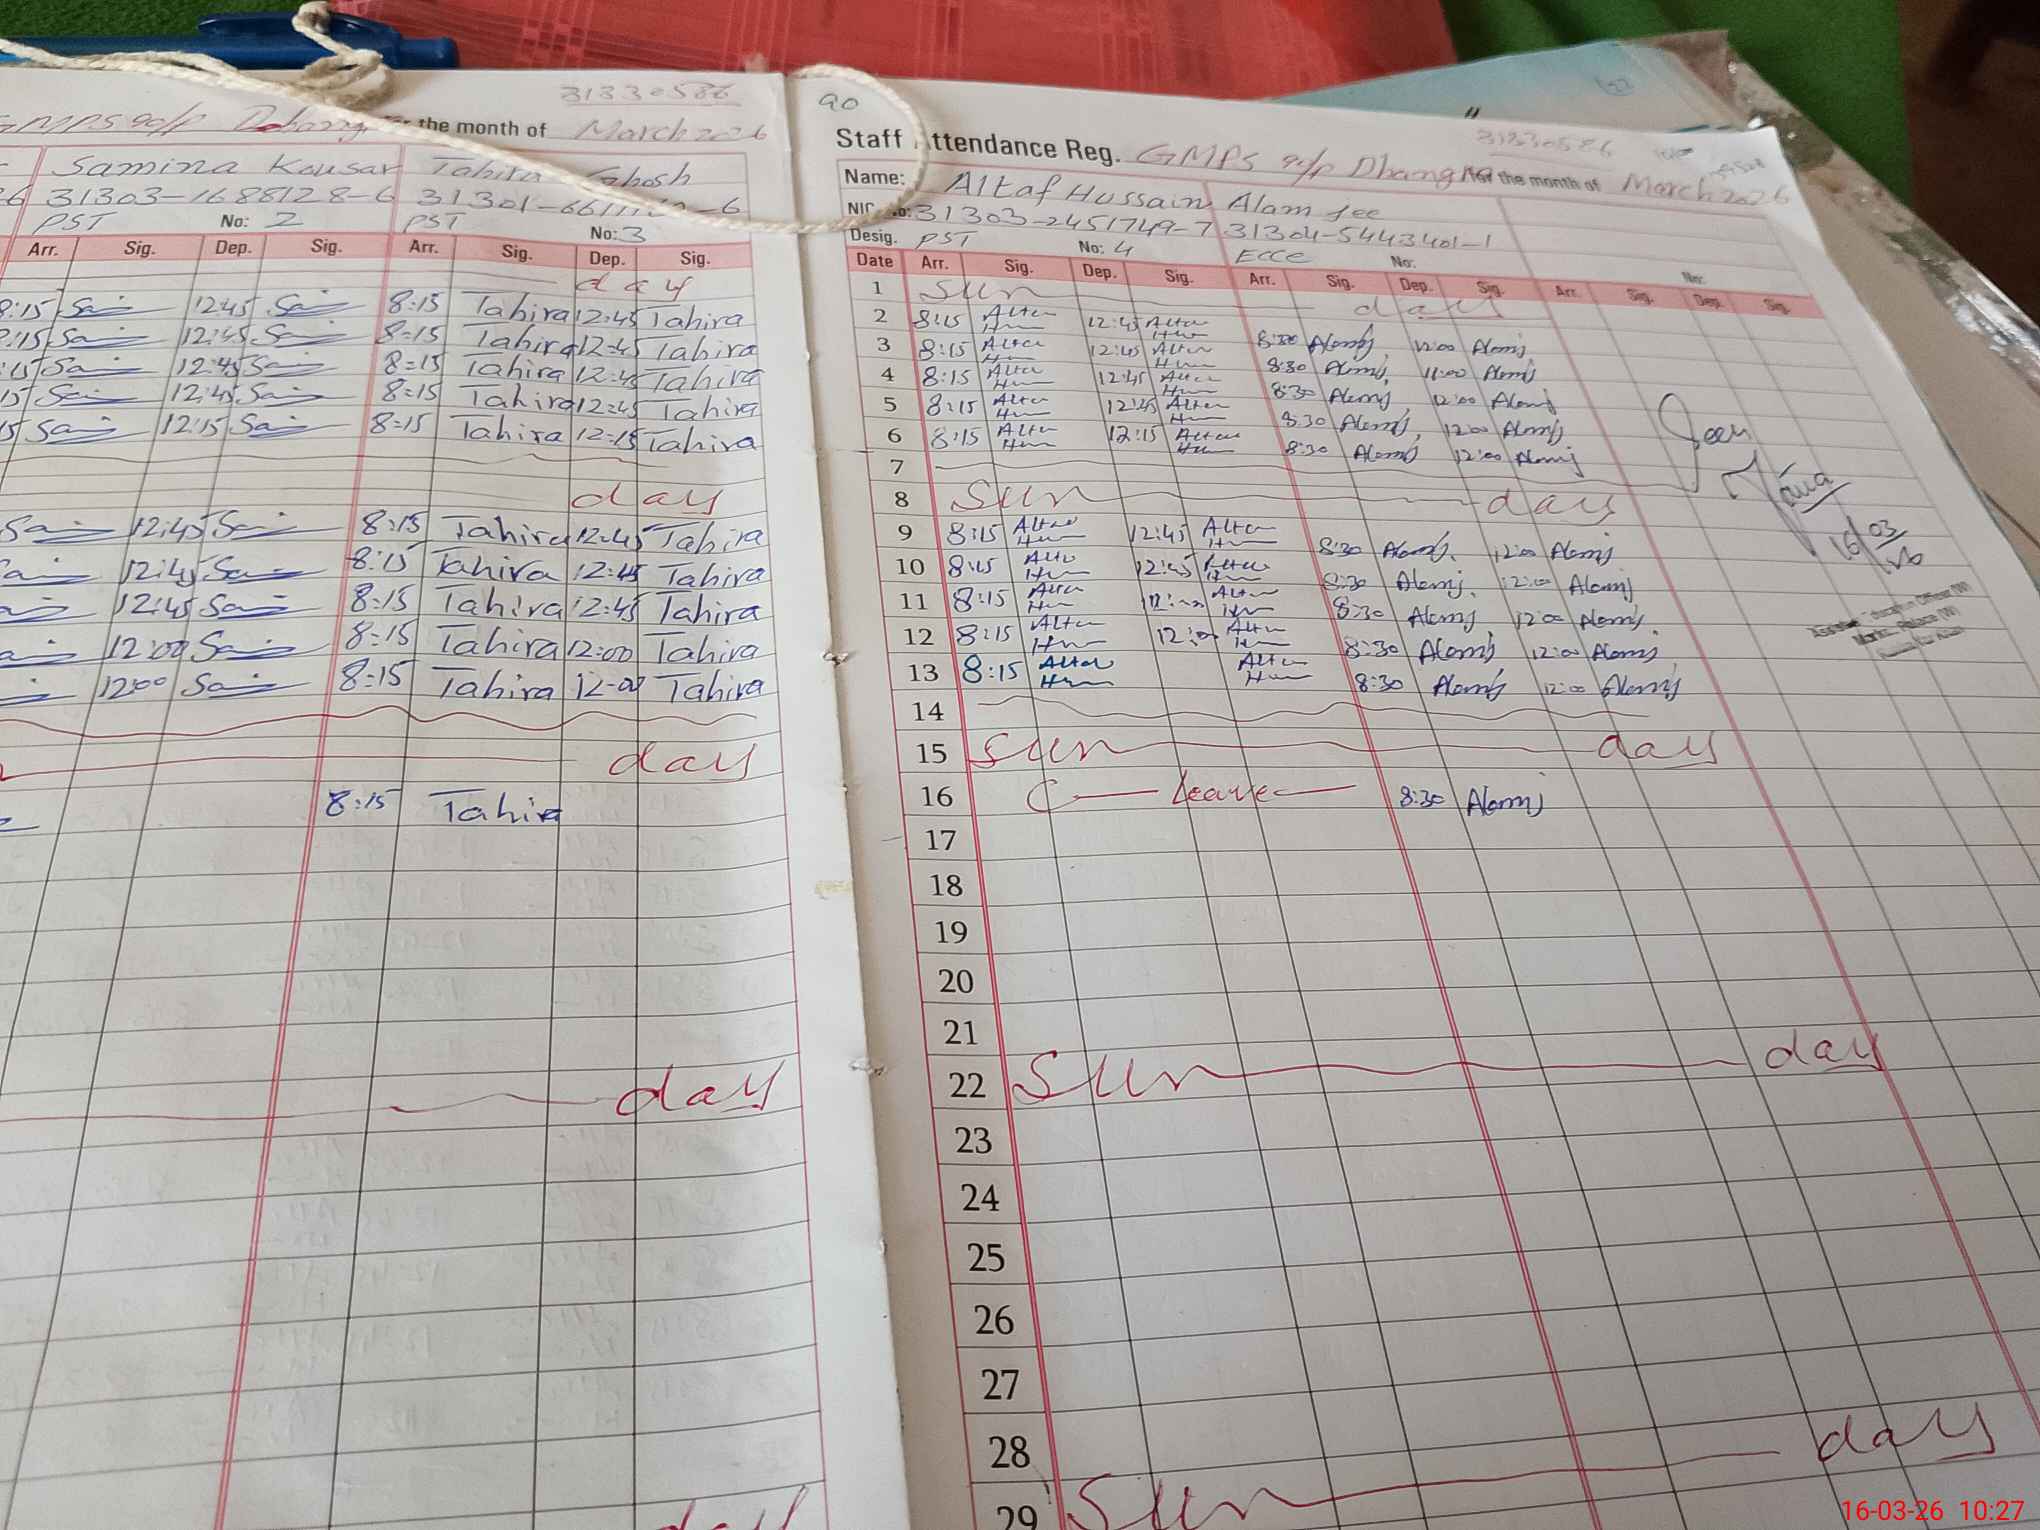 31330586
GMPS 90/P Dhang for the month of March 2026
Samina Kousar Tahira
31303-1688128-6
PST No: 2 PST No: 3
Arr. Sig. Dep. Sig. Arr. Sig. Dep. Sig.
day
8:15 Sai 12:45 Sai 8:15 Tahira 12:45 Tahira
8:15 Sai 12:45 Sai 8:15 Tahira 12:45 Tahira
:15 Sai 12:45 Sai 8:15 Tahira 12:45 Tahira
15 Sai 12:45 Sai 8:15 Tahira 12:45 Tahira
5 Sai 12:15 Sai 8:15 Tahira 12:15 Tahira
day
Sai 12:45 Sai 8:15 Tahira 12:45 Tahira
ai 12:45 Sai 8:15 Tahira 12:45 Tahira
12:45 Sai 8:15 Tahira 12:45 Tahira
12:00 Sai 8:15 Tahira 12:00 Tahira
12:00 Sai 8:15 Tahira 12:00 Tahira
day
8:15 Tahira
day
day
90
31330586
Staff Attendance Reg. GMPS 90/P Dhang for the month of March 2026
Name: Altaf Hussain Alam Jee
NIC No: 31303-2451749-7 31304-5443401-1
Desig. PST No: 4 ECCE No: No:
Date Arr. Sig. Dep. Sig. Arr. Sig. Dep. Sig. Arr. Sig. Dep. Sig.
1 Sun day
2 8:15 Altaf Hun 12:45 Altaf Hun
3 8:15 Altaf Hun 12:45 Altaf Hun 8:30 Alamj 12:00 Alamj
4 8:15 Altaf Hun 12:45 Altaf Hun 8:30 Alamj 12:00 Alamj
5 8:15 Altaf Hun 12:45 Altaf Hun 8:30 Alamj 12:00 Alamj
6 8:15 Altaf Hun 12:15 Altaf Hun 8:30 Alamj 12:00 Alamj
8:30 Alamj 12:00 Alamj
7
8 Sun day
9 8:15 Altaf Hun 12:45 Altaf Hun 8:30 Alamj 12:00 Alamj
10 8:15 Altaf Hun 12:45 Altaf Hun 8:30 Alamj 12:00 Alamj
11 8:15 Altaf Hun Altaf Hun 8:30 Alamj 12:00 Alamj
12 8:15 Altaf Hun 12:00 Altaf Hun 8:30 Alamj 12:00 Alamj
13 8:15 Altaf Hun Altaf Hun 8:30 Alamj 12:00 Alamj
14
15 Sun day
16 C leave 8:30 Alamj
17
18
19
20
21
22 Sun day
23
24
25
26
27
28
29 Sun day
Seen
16/03/26
Assistant Education Officer (W)
16-03-26 10:27